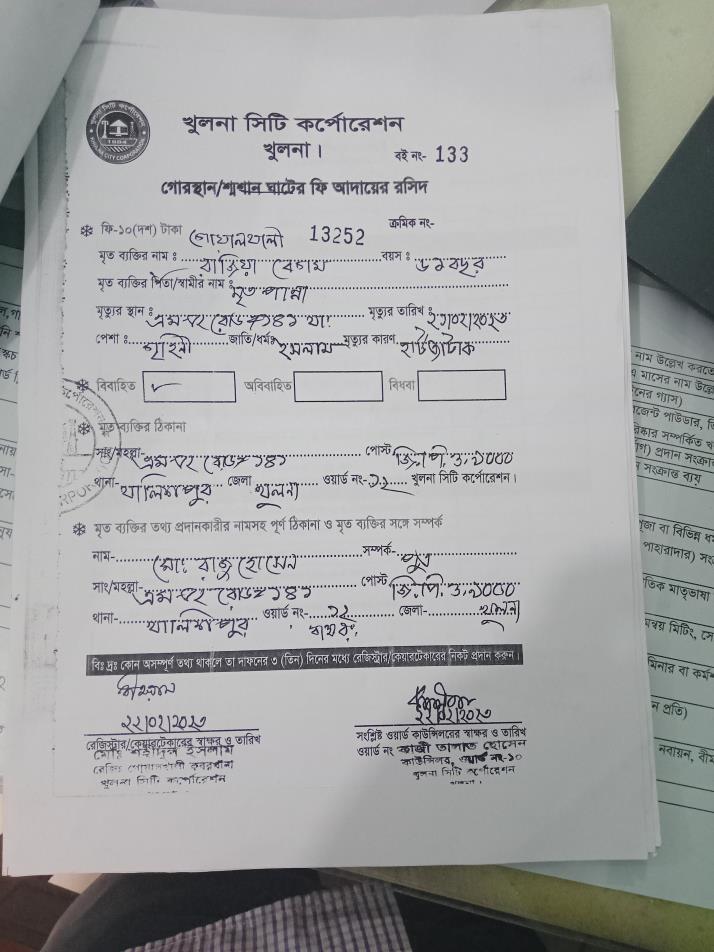 খুলনা সিটি কর্পোরেশন
খুলনা।
বই নং- 133
গোরস্থান/শ্মশান ঘাটের ফি আদায়ের রসিদ
ফি-১০(দশ) টাকা গোয়ালখালী 13252 ক্রমিক নং-
মৃত ব্যক্তির নাম : রাজিয়া বেগম বয়স :
মৃত ব্যক্তির পিতা/স্বামীর নাম : মৃত পান্না
মৃত্যুর স্থান : রোড মৃত্যুর তারিখ :
পেশা : গৃহিনী জাতি/ধর্মঃ ইসলাম মৃত্যুর কারণ হার্টএ্যটাক
বিবাহিত ✓ অবিবাহিত বিধবা
মৃত ব্যক্তির ঠিকানা
সাং/মহল্লা- রোড পোস্ট জি.পি.ও.৯০০০
থানা- খালিশপুর জেলা খুলনা ওয়ার্ড নং- ১২ খুলনা সিটি কর্পোরেশন।
মৃত ব্যক্তির তথ্য প্রদানকারীর নামসহ পূর্ণ ঠিকানা ও মৃত ব্যক্তির সঙ্গে সম্পর্ক
নাম- মোঃ রাজু হোসেন সম্পর্ক- পুত্র
সাং/মহল্লা- রোড পোস্ট জি.পি.ও.৯০০০
থানা- খালিশপুর ওয়ার্ড নং- ১২ জেলা- খুলনা
বিঃ দ্রঃ কোন অসম্পূর্ণ তথ্য থাকলে তা দাফনের ৩ (তিন) দিনের মধ্যে রেজিস্ট্রার/কেয়ারটেকারের নিকট প্রদান করুন।
২২/০২/২০২৩ ২২/০২/২০২৩
রেজিস্ট্রার/কেয়ারটেকারের স্বাক্ষর ও তারিখ
সংশ্লিষ্ট ওয়ার্ড কাউন্সিলরের স্বাক্ষর ও তারিখ
ইসলাম
গোয়ালখালী কবরখানা
খুলনা সিটি কর্পোরেশন
ওয়ার্ড নং কাজী তালাত হোসেন
কাউন্সিলর, ওয়ার্ড নং-১০
খুলনা সিটি কর্পোরেশন